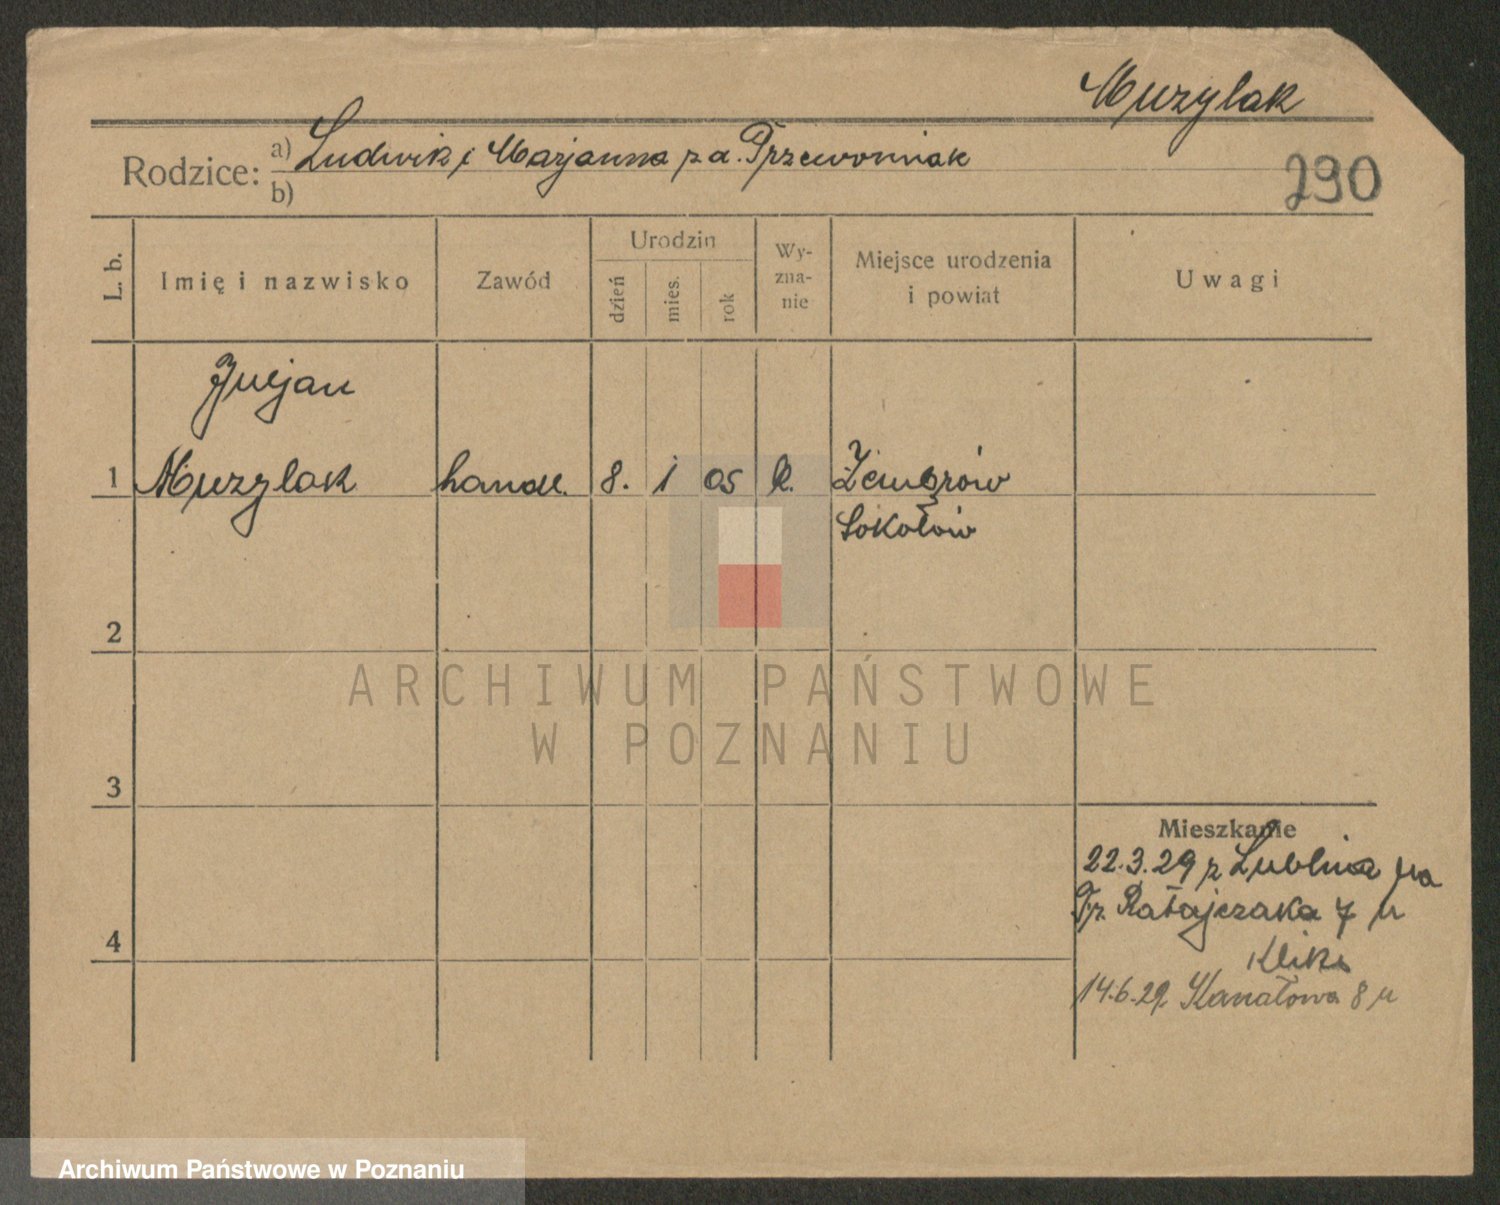 Muzylak
Rodzice: a) Ludwik i Marjanna z d. Przewoniak
b)
290
L. b.
Imię i nazwisko
Zawód
Urodzin
dzień
mies.
rok
Wy-
zna-
nie
Miejsce urodzenia
i powiat
Uwagi
Juljan
1 Muzylak handl. 8. 1 05 k.
Sokołów
2
3
4
Mieszkanie
22.3.29 z Lublina na
Fr. Ratajczaka 7 u
14.6.29. Kanałowa 8 u
ARCHIWUM PAŃSTWOWE
W POZNANIU
Archiwum Państwowe w Poznaniu